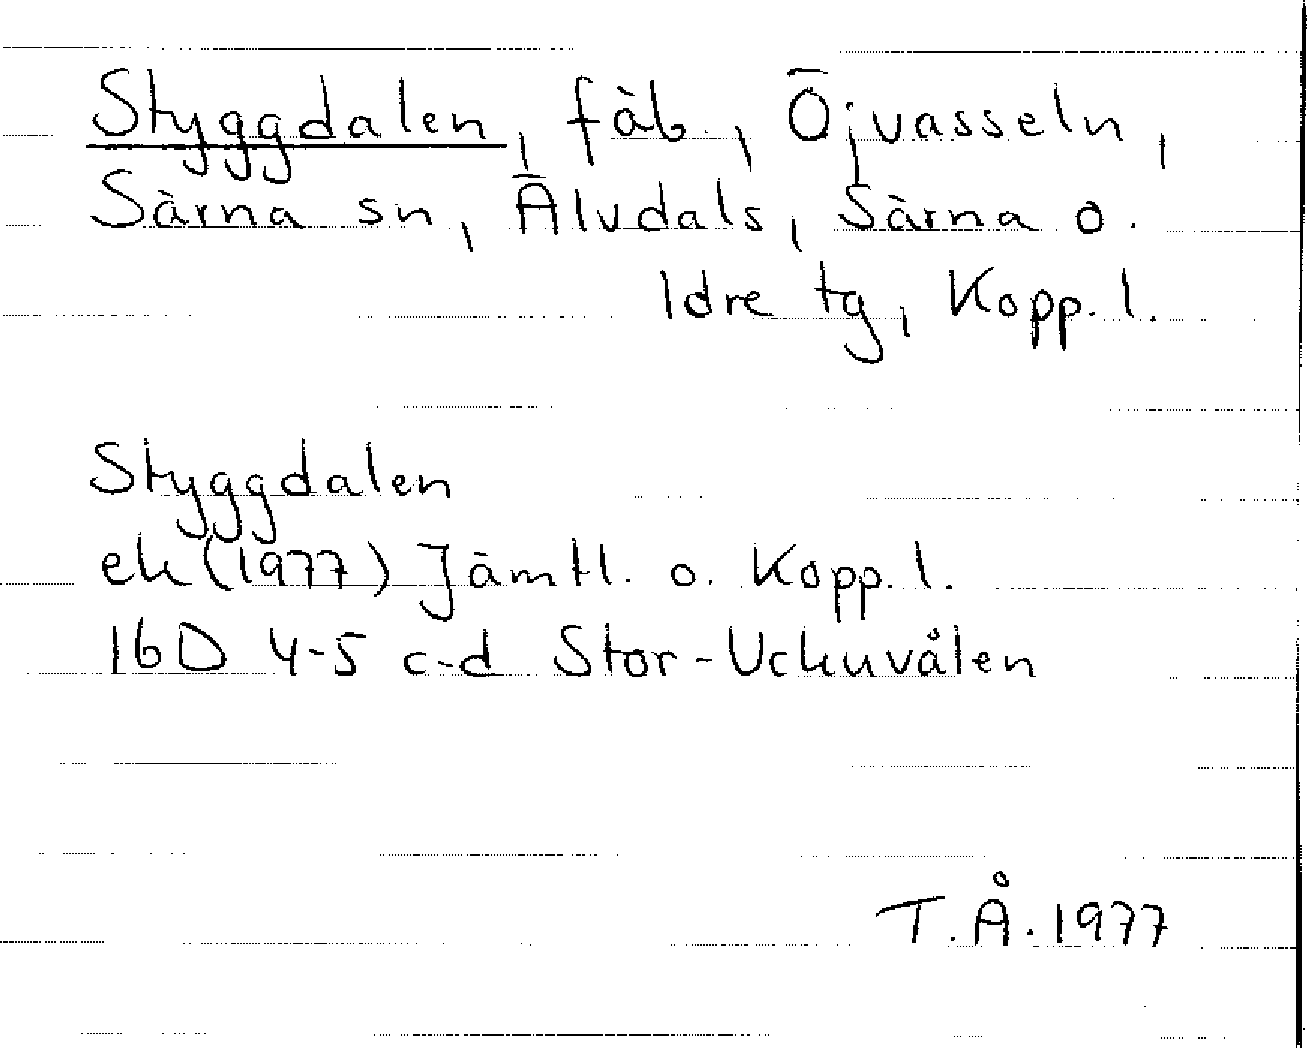 Styggdalen, fäb., Öjvasseln,
Särna sn, Älvdals, Särna o.
Idre tg, Kopp. l.
Styggdalen
ek (1977) Jämtl. o. Kopp. l.
16D 4-5 c-d Stor-Uckuvålen
T.Å. 1977